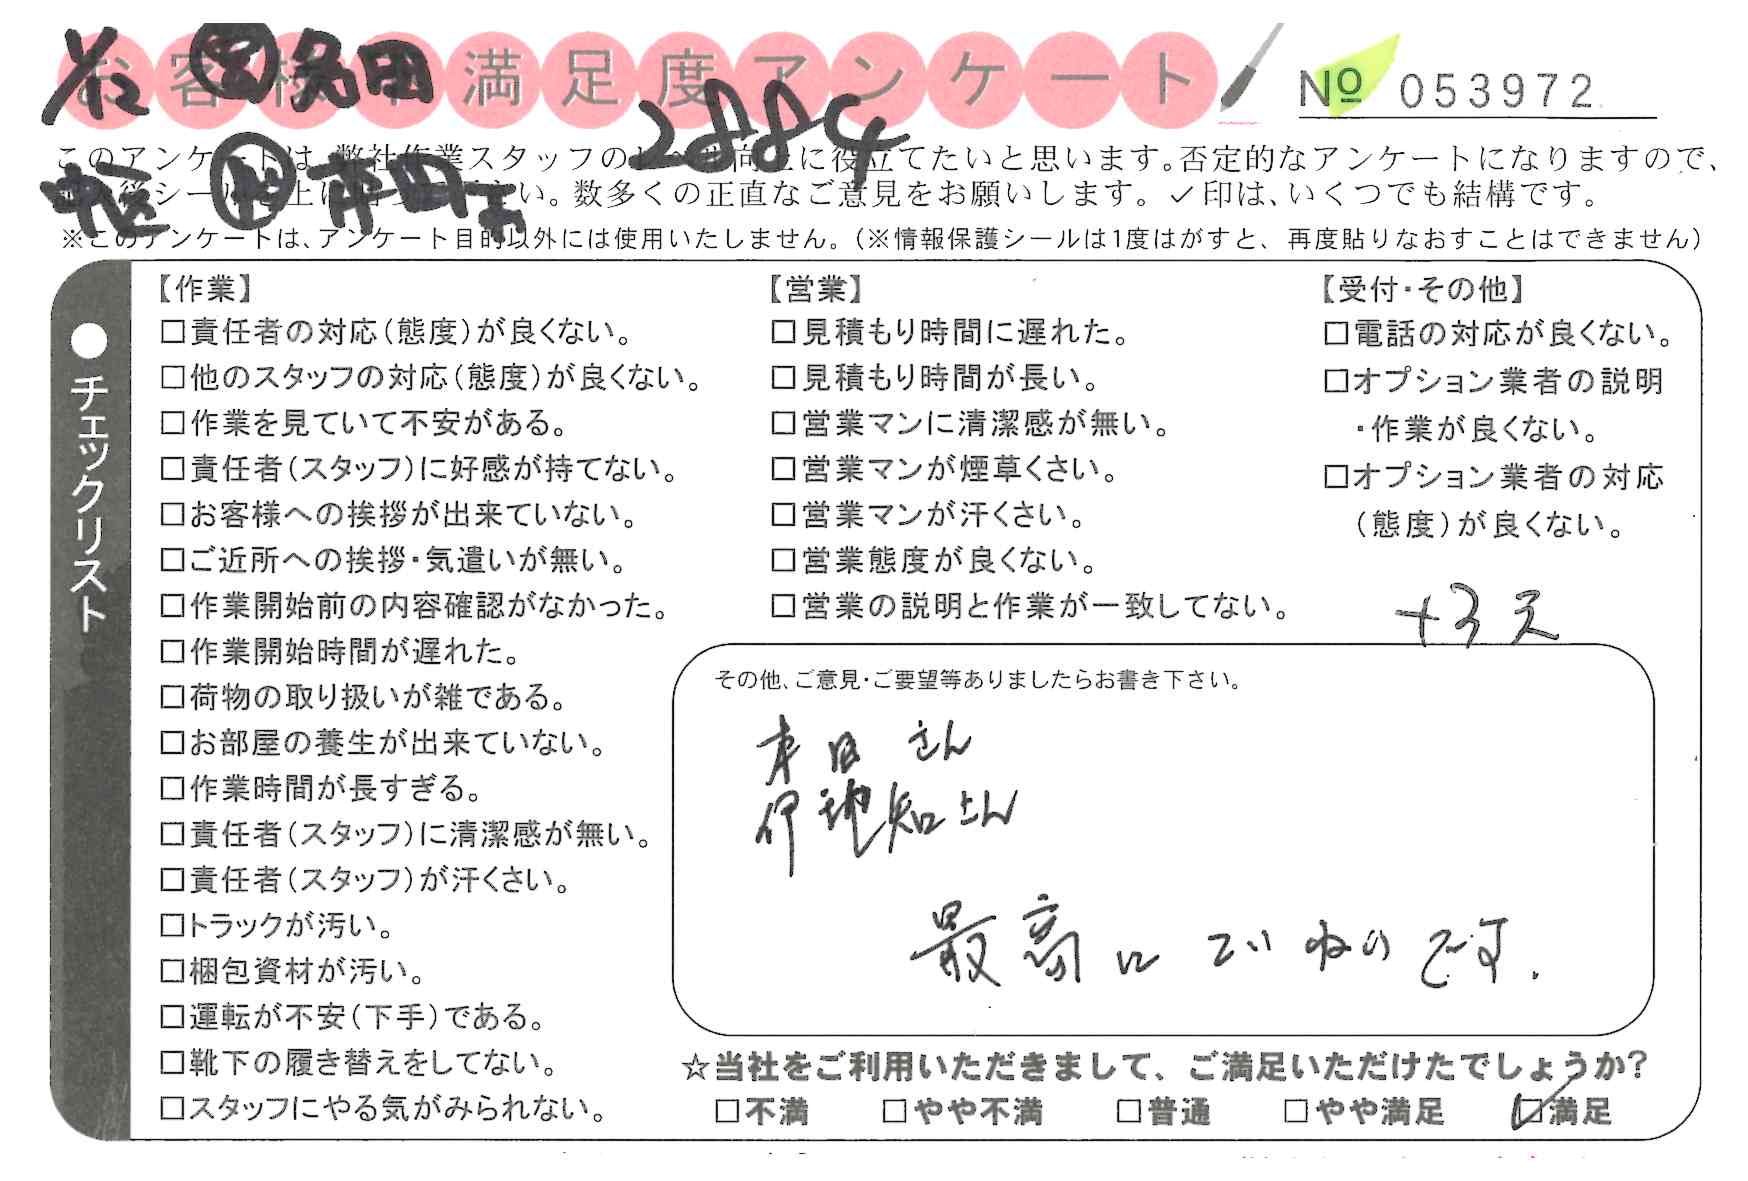 お客様不満足度アンケート
№ 053972
2884
このアンケートは、弊社作業スタッフのレベル向上に役立てたいと思います。否定的なアンケートになりますので、
い。数多くの正直なご意見をお願いします。✓印は、いくつでも結構です。
※このアンケートは、アンケート目的以外には使用いたしません。(※情報保護シールは1度はがすと、再度貼りなおすことはできません)
●チェックリスト
【作業】
□責任者の対応(態度)が良くない。
□他のスタッフの対応(態度)が良くない。
□作業を見ていて不安がある。
□責任者(スタッフ)に好感が持てない。
□お客様への挨拶が出来ていない。
□ご近所への挨拶・気遣いが無い。
□作業開始前の内容確認がなかった。
□作業開始時間が遅れた。
□荷物の取り扱いが雑である。
□お部屋の養生が出来ていない。
□作業時間が長すぎる。
□責任者(スタッフ)に清潔感が無い。
□責任者(スタッフ)が汗くさい。
□トラックが汚い。
□梱包資材が汚い。
□運転が不安(下手)である。
□靴下の履き替えをしてない。
□スタッフにやる気がみられない。
【営業】
□見積もり時間に遅れた。
□見積もり時間が長い。
□営業マンに清潔感が無い。
□営業マンが煙草くさい。
□営業マンが汗くさい。
□営業態度が良くない。
□営業の説明と作業が一致してない。
【受付・その他】
□電話の対応が良くない。
□オプション業者の説明
・作業が良くない。
□オプション業者の対応
(態度)が良くない。
+3
その他、ご意見・ご要望等ありましたらお書き下さい。
さん
伊地知さん
最高にていねいです.
☆当社をご利用いただきまして、ご満足いただけたでしょうか?
□不満 □やや不満 □普通 □やや満足 ☑満足